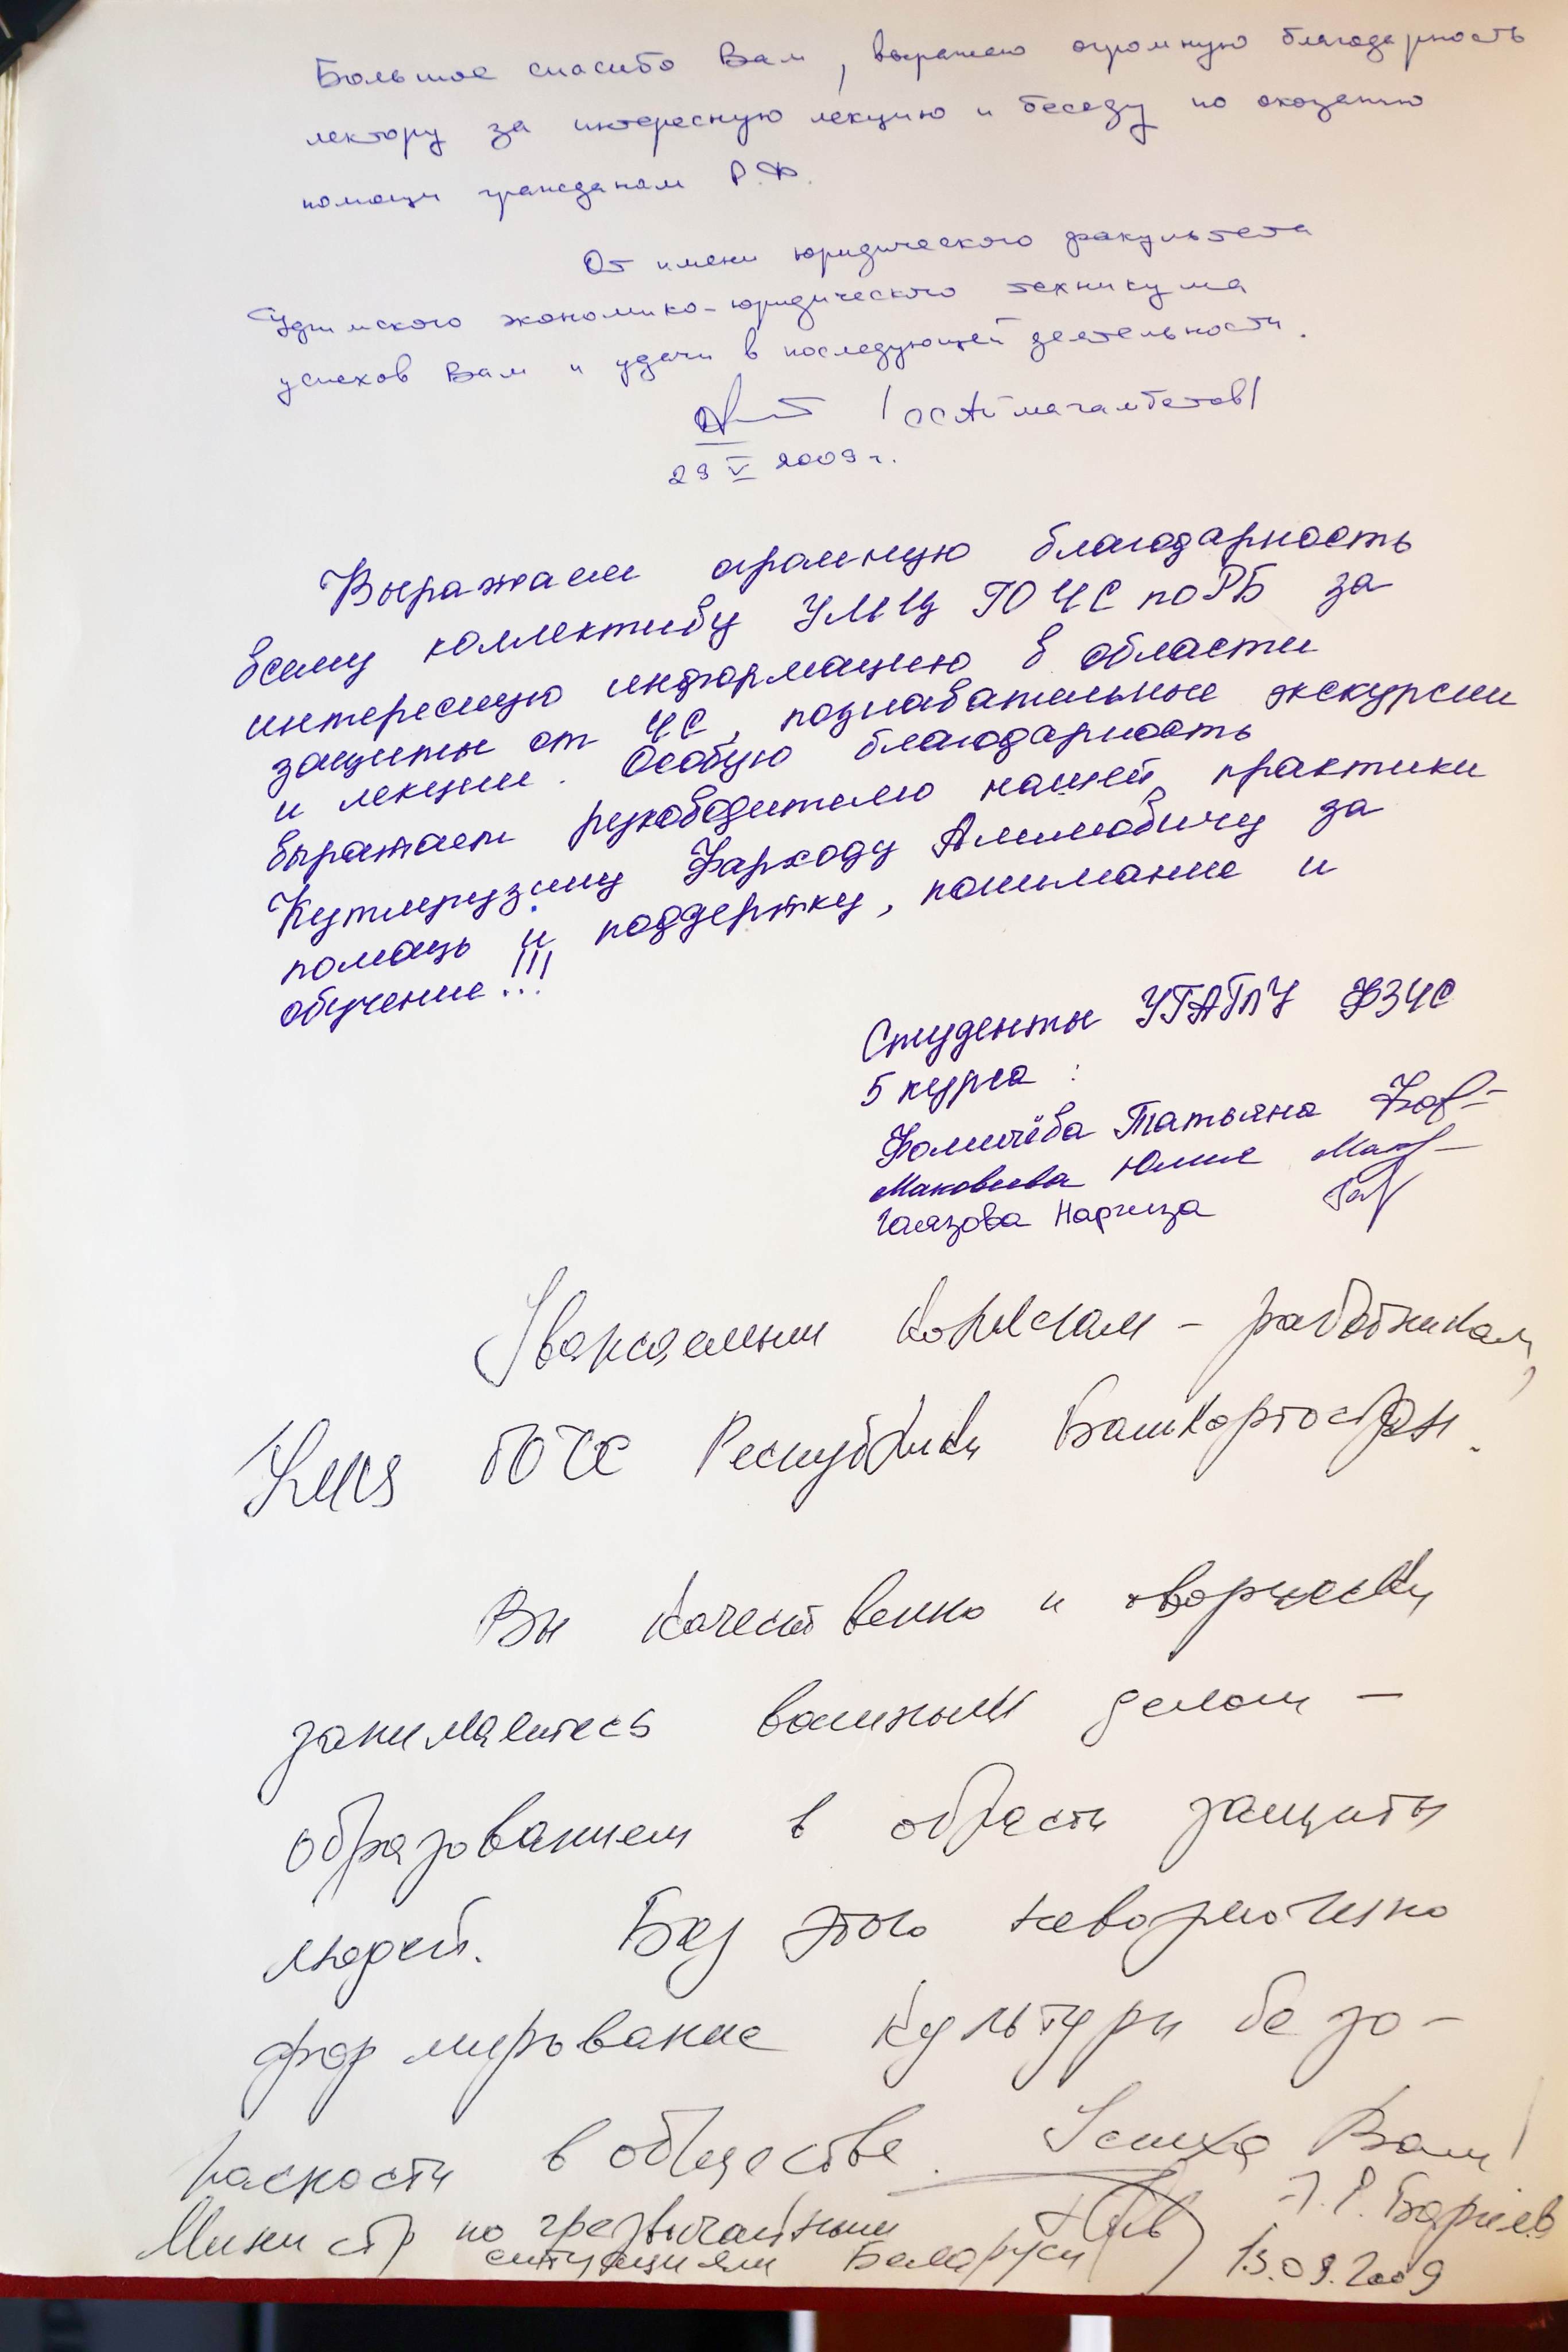 Большое спасибо Вам, выражаю огромную благодарность
лектору за интересную лекцию и беседу по оказанию
помощи гражданам Р.Ф.
От имени юридического факультета
экономико-юридического техникума
успехов Вам и удачи в последующей деятельности.
29 V 2009 г.
Выражаем огромную благодарность
всему коллективу УМЦ ГОЧС по РБ за
интересную информацию в области
защиты от ЧС, познавательные экскурсии
и лекции. Особую благодарность
выражаем руководителю нашей практики
Фарходу Алимовичу за
помощь и поддержку, понимание и
обучение!!!
Студенты УГАТУ ФЗЧС
5 курса:
Фомичёва Татьяна
Маковеева Юлия
Галязова Наргиза
Уважаемым коллегам - работникам
УМЦ ГОЧС Республики Башкортостан.
Вы качественно и творчески
занимаетесь важным делом -
образованием в области защиты
людей. Без этого невозможно
формирование культуры безо-
пасности в обществе. Успеха Вам!
Министр по чрезвычайным
ситуациям Беларуси
Бариев
13.09.2009